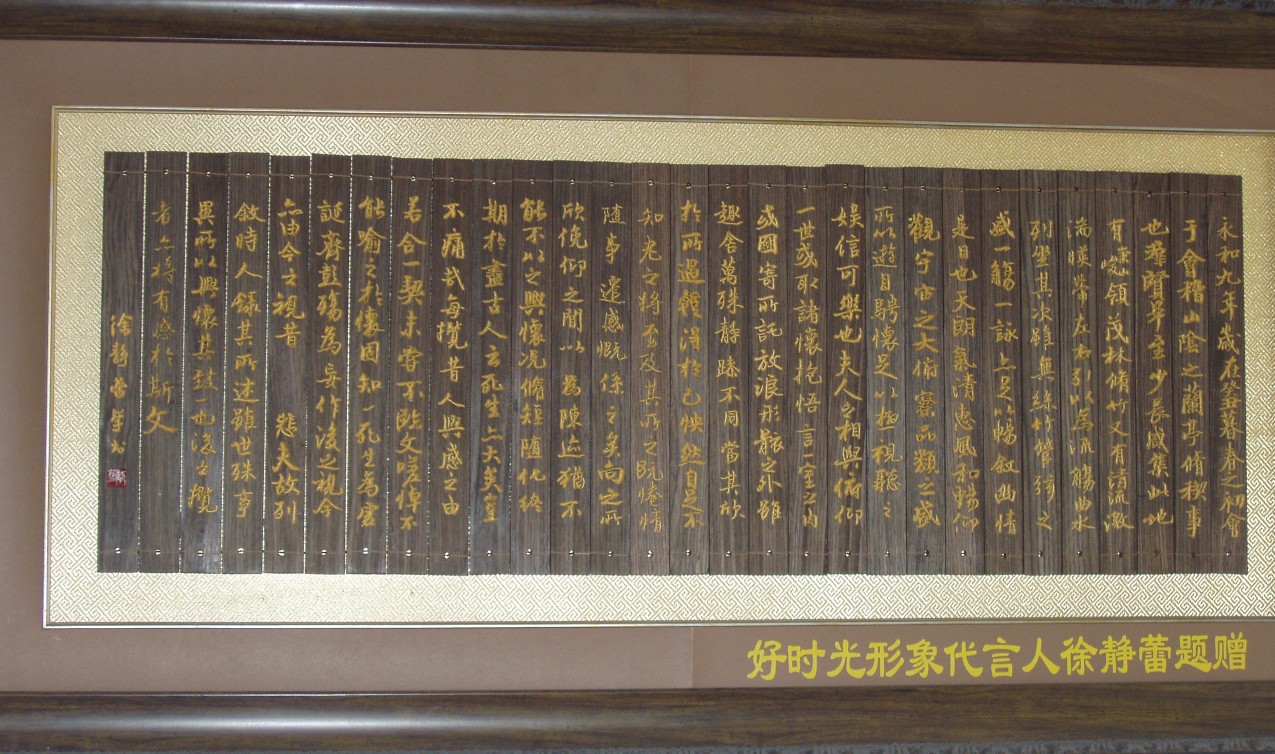 永和九年歲在癸丑暮春之初會
于會稽山陰之蘭亭脩禊事
也羣賢畢至少長咸集此地
有崇山峻領茂林脩竹又有清流激
湍暎帶左右引以為流觴曲水
列坐其次雖無絲竹管弦之
盛一觴一詠亦足以暢敘幽情
是日也天朗氣清惠風和暢仰
觀宇宙之大俯察品類之盛
所以遊目騁懷足以極視聽之
娛信可樂也夫人之相與俯仰
一世或取諸懷抱悟言一室之內
或因寄所託放浪形骸之外雖
趣舍萬殊靜躁不同當其欣
於所遇暫得於己怏然自足不
知老之將至及其所之既惓情
隨事遷感慨係之矣向之所
欣俛仰之閒以為陳迹猶不
能不以之興懷況脩短隨化終
期於盡古人云死生亦大矣豈
不痛哉每攬昔人興感之由
若合一契未嘗不臨文嗟悼不
能喻之於懷固知一死生為虛
誕齊彭殤為妄作後之視今
亦由今之視昔 悲夫故列
敘時人錄其所述雖世殊事
異所以興懷其致一也後之攬
者亦將有感於斯文
徐靜蕾
好时光形象代言人徐静蕾题赠